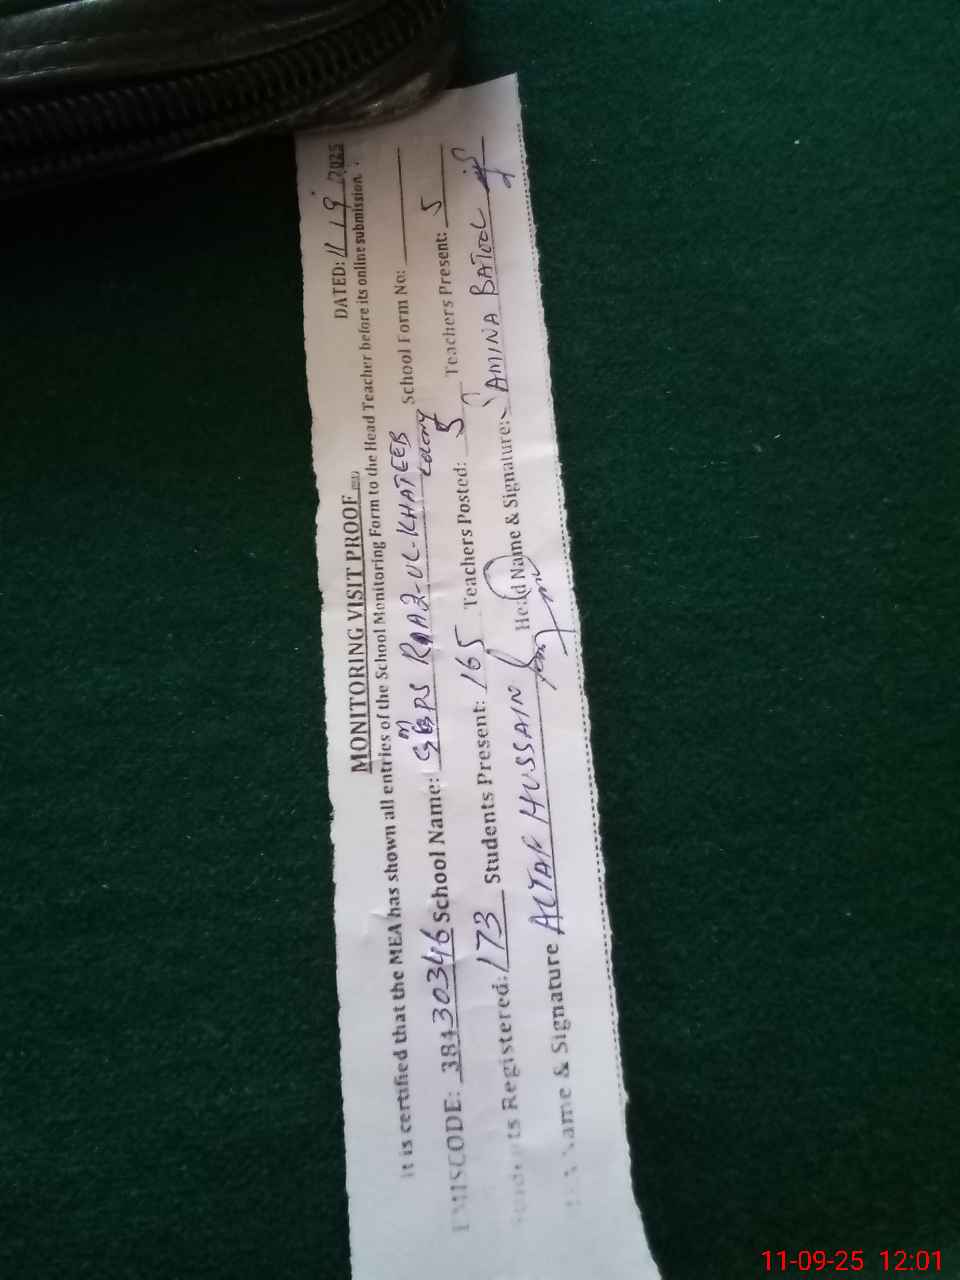 DATED: 11/9/2025
MONITORING VISIT PROOF
It is certified that the MEA has shown all entries of the School Monitoring Form to the Head Teacher before its online submission.
EMISCODE: 38430346 School Name: GMPS RAAZ-UL-KHATEEB Colony School Form No:
Students Registered: 173 Students Present: 165 Teachers Posted: 5 Teachers Present: 5
MEA Name & Signature ALTAF HUSSAIN Head Name & Signature: AMINA BATOOL
11-09-25 12:01